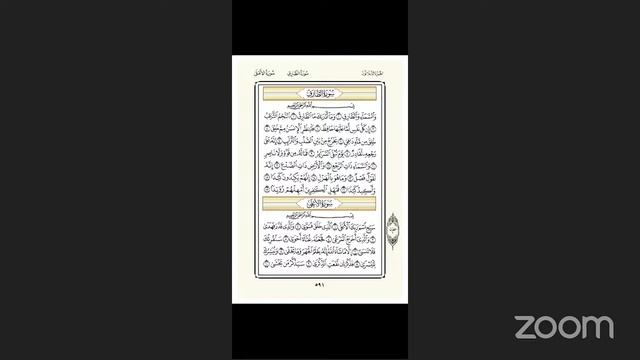 سُورَةُ الأَعْلَى سُورَةُ الطَّارِقِ الجُزْءُ الثَّلَاثُونَ
سُورَةُ الطَّارِقِ
بِسْمِ اللَّهِ الرَّحْمَٰنِ الرَّحِيمِ
وَالسَّمَاءِ وَالطَّارِقِ ١ وَمَا أَدْرَاكَ مَا الطَّارِقُ ٢ النَّجْمُ الثَّاقِبُ
٣ إِن كُلُّ نَفْسٍ لَّمَّا عَلَيْهَا حَافِظٌ ٤ فَلْيَنظُرِ الْإِنسَانُ مِمَّ خُلِقَ ٥
خُلِقَ مِن مَّاءٍ دَافِقٍ ٦ يَخْرُجُ مِن بَيْنِ الصُّلْبِ وَالتَّرَائِبِ ٧ إِنَّهُ عَلَىٰ
رَجْعِهِ لَقَادِرٌ ٨ يَوْمَ تُبْلَى السَّرَائِرُ ٩ فَمَا لَهُ مِن قُوَّةٍ وَلَا نَاصِرٍ
١٠ وَالسَّمَاءِ ذَاتِ الرَّجْعِ ١١ وَالْأَرْضِ ذَاتِ الصَّدْعِ ١٢ إِنَّهُ
لَقَوْلٌ فَصْلٌ ١٣ وَمَا هُوَ بِالْهَزْلِ ١٤ إِنَّهُمْ يَكِيدُونَ كَيْدًا ١٥
وَأَكِيدُ كَيْدًا ١٦ فَمَهِّلِ الْكَافِرِينَ أَمْهِلْهُمْ رُوَيْدًا ١٧
سُورَةُ الأَعْلَى
بِسْمِ اللَّهِ الرَّحْمَٰنِ الرَّحِيمِ
سَبِّحِ اسْمَ رَبِّكَ الْأَعْلَى ١ الَّذِي خَلَقَ فَسَوَّىٰ ٢ وَالَّذِي قَدَّرَ فَهَدَىٰ
٣ وَالَّذِي أَخْرَجَ الْمَرْعَىٰ ٤ فَجَعَلَهُ غُثَاءً أَحْوَىٰ ٥ سَنُقْرِئُكَ
فَلَا تَنسَىٰ ٦ إِلَّا مَا شَاءَ اللَّهُ إِنَّهُ يَعْلَمُ الْجَهْرَ وَمَا يَخْفَىٰ ٧ وَنُيَسِّرُكَ
لِلْيُسْرَىٰ ٨ فَذَكِّرْ إِن نَّفَعَتِ الذِّكْرَىٰ ٩ سَيَذَّكَّرُ مَن يَخْشَىٰ ١٠
٥٩١
zoom